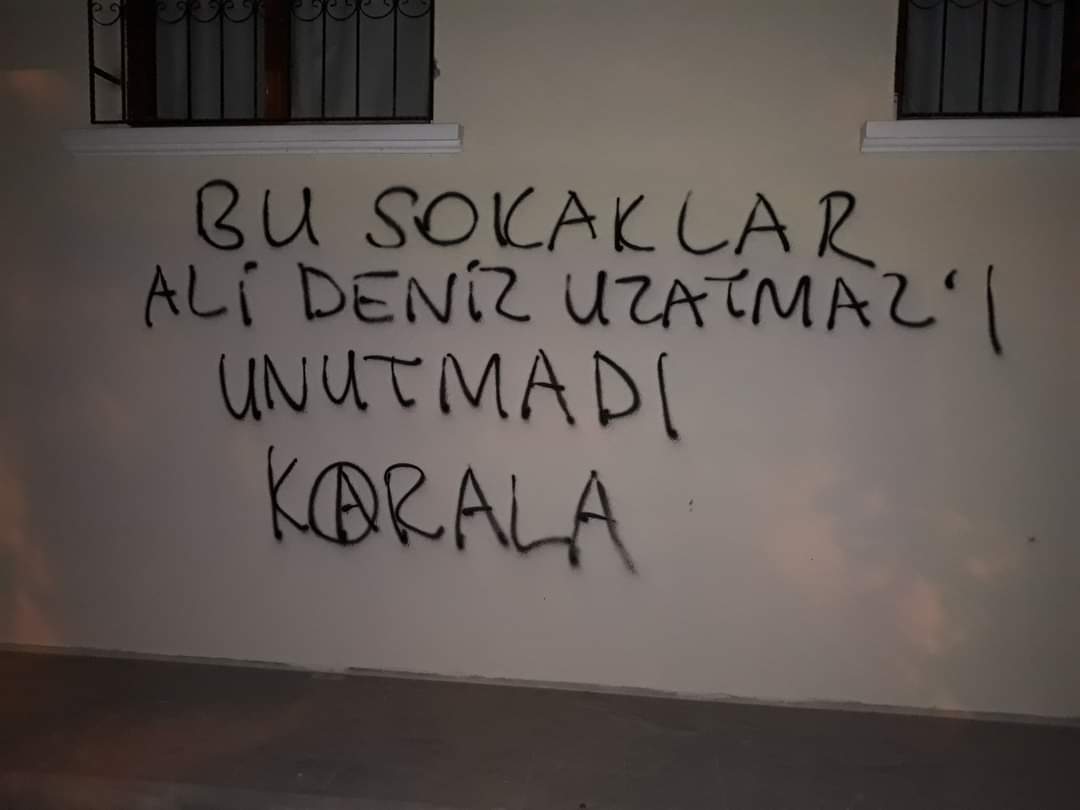 BU SOKAKLAR
ALİ DENİZ UZATMAZ'I
UNUTMADI
KARALA